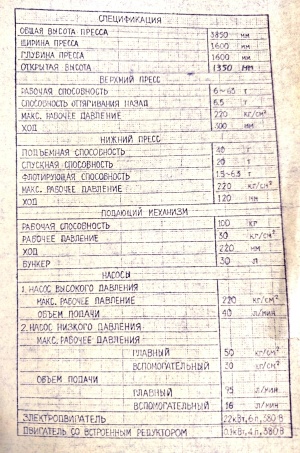 СПЕЦИФИКАЦИЯ
ОБЩАЯ ВЫСОТА ПРЕССА 3850 мм
ШИРИНА ПРЕССА 1600 мм
ГЛУБИНА ПРЕССА 1600 мм
ОТКРЫТАЯ ВЫСОТА 1350 мм
ВЕРХНИЙ ПРЕСС
РАБОЧАЯ СПОСОБНОСТЬ т
СПОСОБНОСТЬ ОТЯГИВАНИЯ НАЗАД 6.5 т
МАКС. РАБОЧЕЕ ДАВЛЕНИЕ 220 кг/см²
ХОД мм
НИЖНИЙ ПРЕСС
ПОДЪЕМНАЯ СПОСОБНОСТЬ 40 т
СПУСКНАЯ СПОСОБНОСТЬ 20 т
ФЛОТИРУЮЩАЯ СПОСОБНОСТЬ 1.5~6.3 т
МАКС. РАБОЧЕЕ ДАВЛЕНИЕ 220 кг/см²
ХОД 120 мм
ПОДАЮЩИЙ МЕХАНИЗМ
РАБОЧАЯ СПОСОБНОСТЬ 100 кг
РАБОЧЕЕ ДАВЛЕНИЕ 30 кг/см²
ХОД 220 мм
БУНКЕР 30 л
НАСОСЫ
1. НАСОС ВЫСОКОГО ДАВЛЕНИЯ
МАКС. РАБОЧЕЕ ДАВЛЕНИЕ 220 кг/см²
ОБЪЕМ ПОДАЧИ 40 л/мин
2. НАСОС НИЗКОГО ДАВЛЕНИЯ
МАКС. РАБОЧЕЕ ДАВЛЕНИЕ
ГЛАВНЫЙ 50 кг/см²
ВСПОМОГАТЕЛЬНЫЙ 30 кг/см²
ОБЪЕМ ПОДАЧИ
ГЛАВНЫЙ 95 л/мин
ВСПОМОГАТЕЛЬНЫЙ 16 л/мин
ЭЛЕКТРОДВИГАТЕЛЬ 22кВт, 6п, 380В
ДВИГАТЕЛЬ СО ВСТРОЕННЫМ РЕДУКТОРОМ 4п, 380В